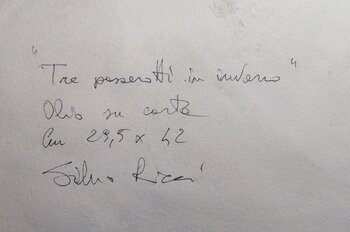 "Tre passerotti in inverno"
Olio su carta
Cm 29,5 x 42
Silvia Ricci